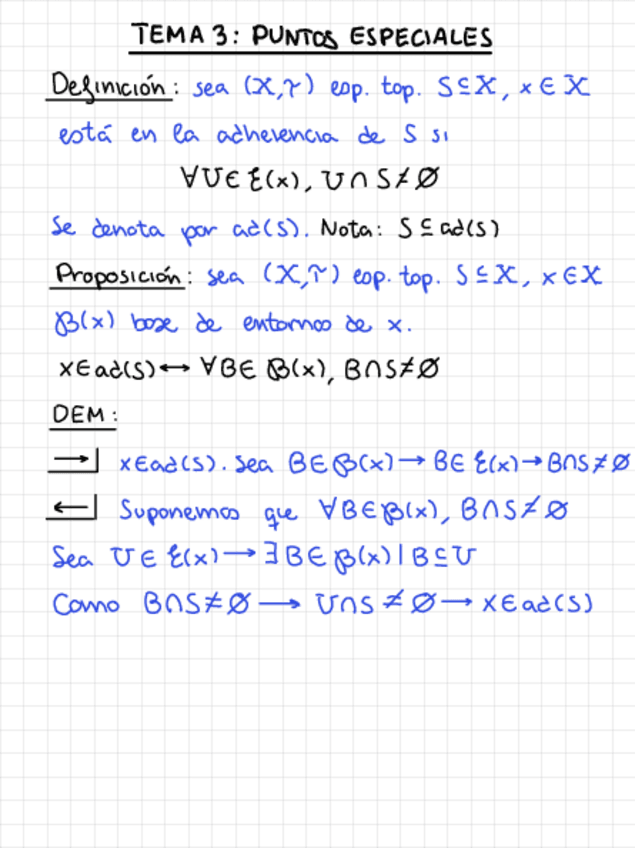 TEMA 3: PUNTOS ESPECIALES
Definición: sea (X,τ) esp. top. S⊆X, x∈X
está en la adherencia de S si
∀U∈ξ(x), U∩S≠∅
Se denota por ad(S). Nota: S⊆ad(S)
Proposición: sea (X,τ) esp. top. S⊆X, x∈X
β(x) base de entornos de x.
x∈ad(S)↔∀B∈β(x), B∩S≠∅
DEM:
→| x∈ad(S). Sea B∈β(x)→B∈ξ(x)→B∩S≠∅
←| Suponemos que ∀B∈β(x), B∩S≠∅
Sea U∈ξ(x)→∃B∈β(x)|B⊆U
Como B∩S≠∅→U∩S≠∅→x∈ad(S)